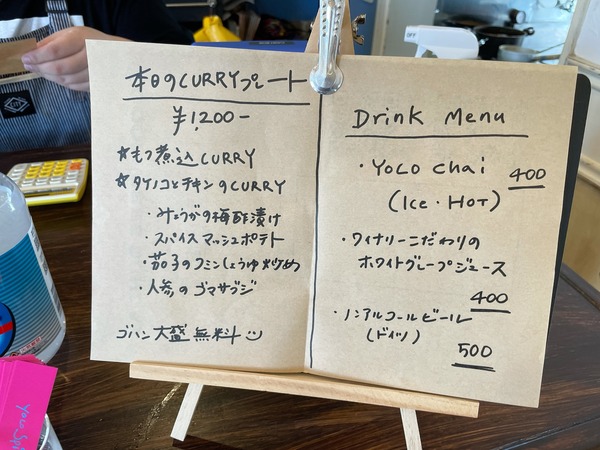 本日のCURRYプレート
¥1,200-
☆もつ煮込CURRY
☆タケノコとチキンのCURRY
・みょうがの梅酢漬け
・スパイスマッシュポテト
・茄子のクミンしょうゆ炒め
・人参のゴマサブジ
ゴハン大盛無料☺
Drink Menu
・YOLO chai 400
(Ice・HOT)
・ワイナリーこだわりの
ホワイトグレープジュース
400
・ノンアルコールビール
(ドイツ)
500
YOLO Spi